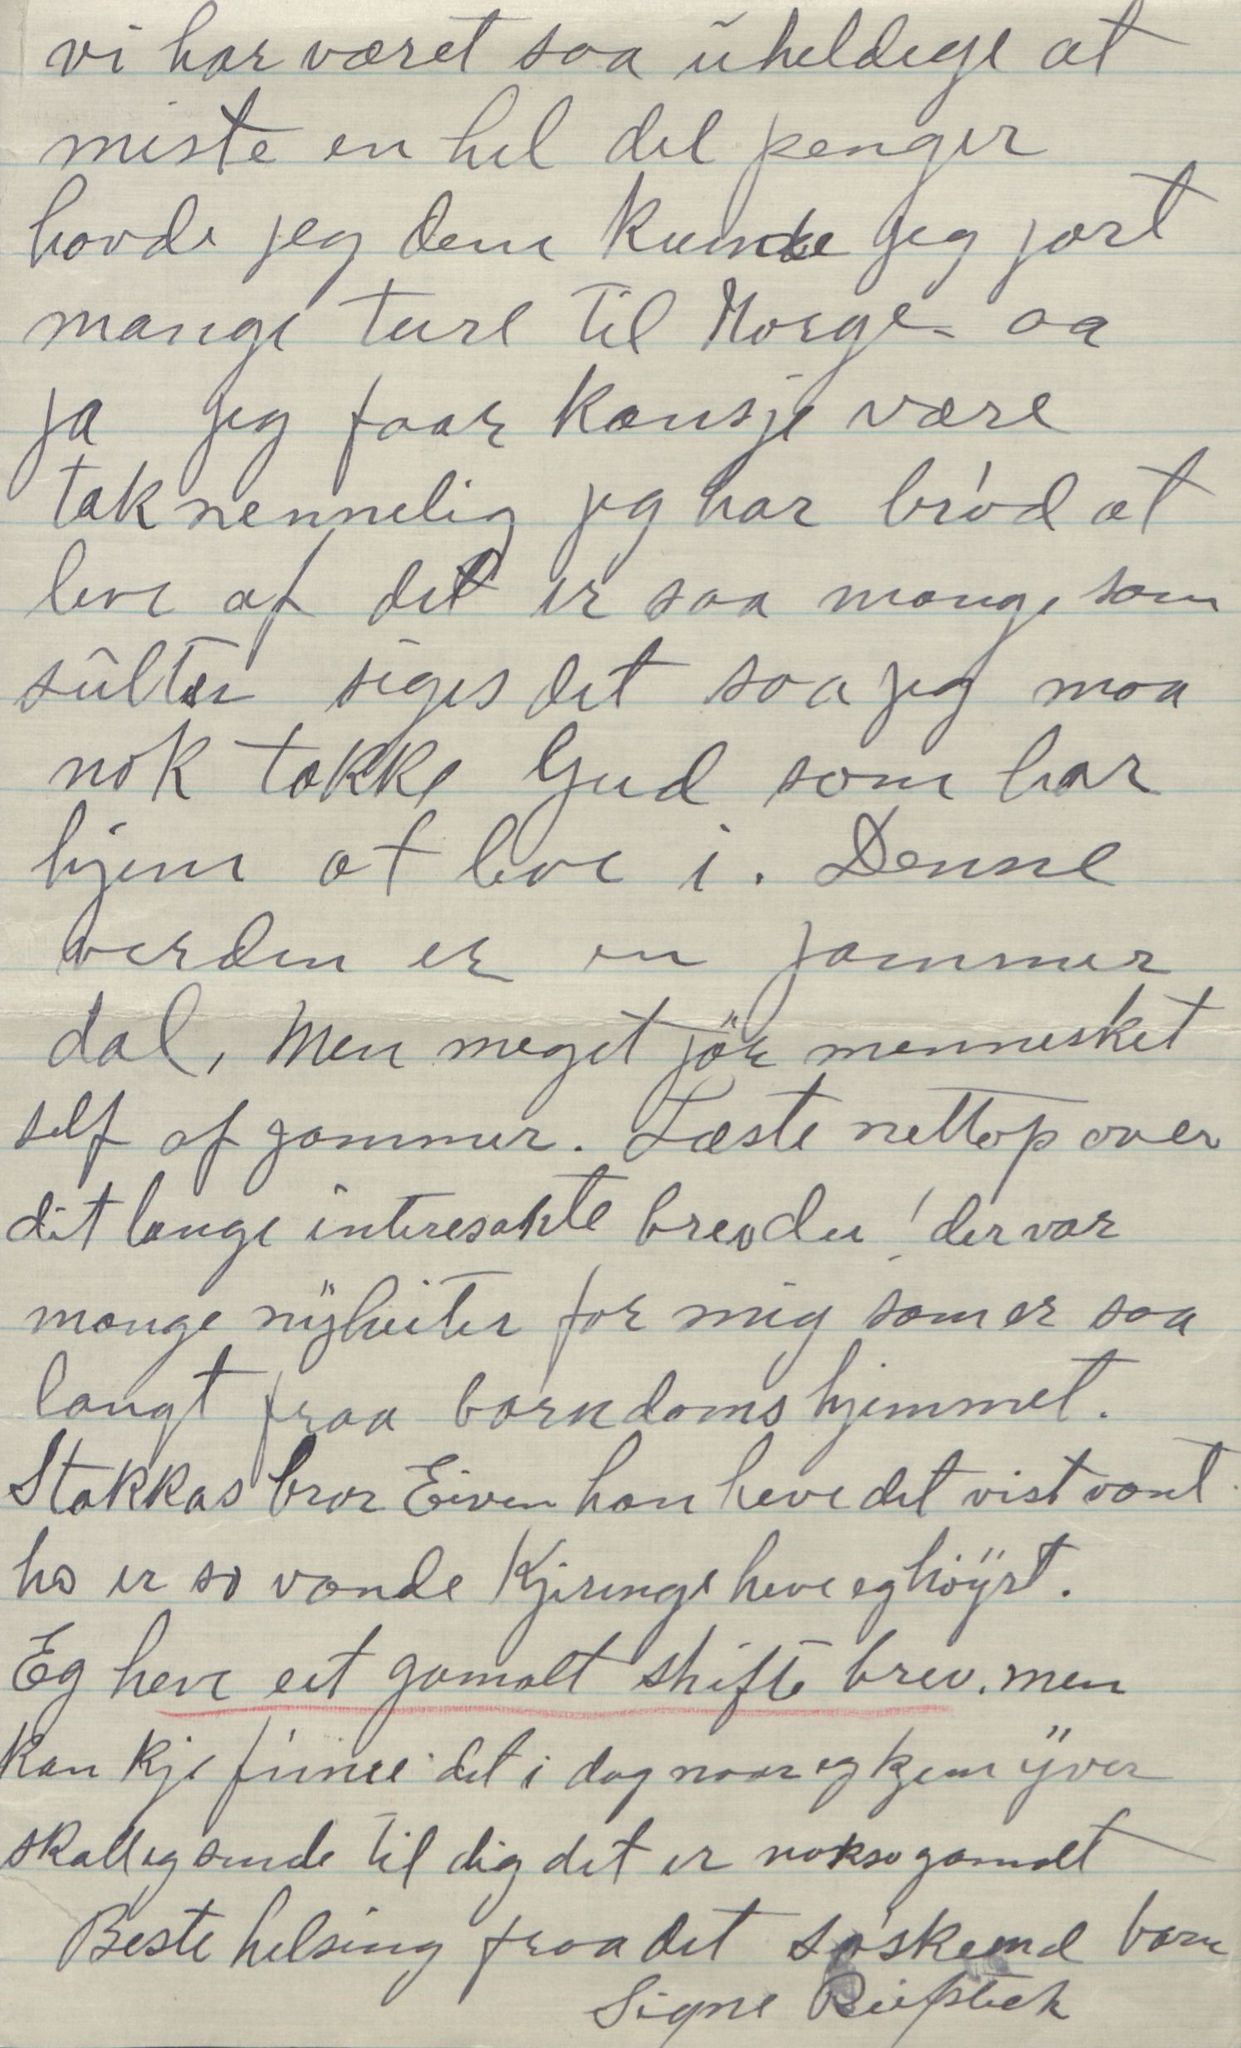 vi har været saa ŭheldege at
miste en hel del penger
havde jeg dem kunde jeg jort
mange ture til Norge - aa
ja jeg faar kansje være
taknemmelig jeg har brød at
leve af det er saa mange som
sŭlter siges det saa jeg maa
nok takke Gud som har
hjem at leve i. Denne
verden er en jammer
dal, Men meget jör mennesket
self af jammer. Læste nettop over
dit lange interesante brev du! der var
mange nÿheiter for mig som er saa
langt fraa barndomshjemmet.
Stakkas bror Eiven han heve det vist vont
ho er so vonde Kjeringe heve eg höÿrt.
Eg heve eit gamalt skifte brev. men
kan kje finne det i dag naar eg kjem ÿver
skall eg sende til dig det er nokso gamalt
Beste helsing fraa det søskend barn
Signe